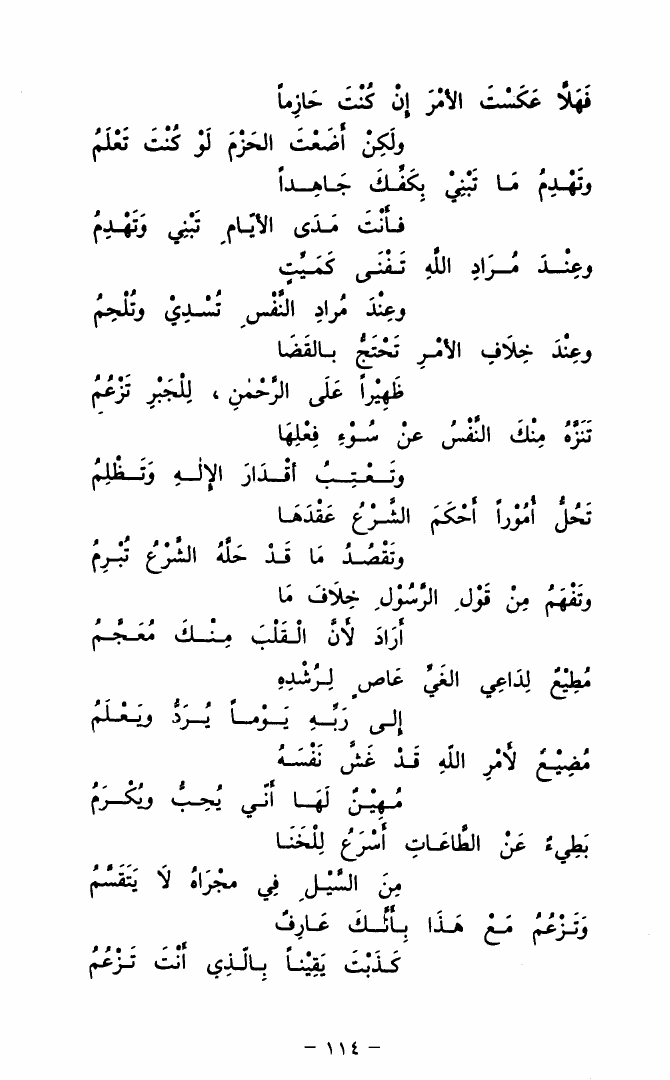 فَهَلاَّ عَكَسْتَ الأمْرَ إنْ كُنْتَ حَازِماً
ولَكِنْ أَضَعْتَ الحَزْمَ لَوْ كُنْتَ تَعْلَمُ
وتَهْدِمُ مَا تَبْنِيْ بِكَفِّكَ جَاهِداً
فَأَنْتَ مَدَى الأيَّامِ تَبْنِي وَتَهْدِمُ
وعِنْدَ مُرَادِ اللَّهِ تَفْنَى كَمَيِّتٍ
وعِنْدَ مُرادِ النَّفْسِ تُسْدِيْ وتُلْحِمُ
وعِنْدَ خِلَافِ الأمْرِ تَحْتَجُّ بالقَضَا
ظَهِيْراً عَلَى الرَّحْمٰنِ ، لِلْجَبْرِ تَزْعُمُ
تَنَزِّهُ مِنْكَ النَّفْسُ عنْ سُوْءِ فِعْلِهَا
وتَعْتِبُ أقْدَارَ الإلٰهِ وَتَظْلِمُ
تَحُلُّ أُمُوْراً أَحْكَمَ الشَّرْعُ عَقْدَهَا
وتَقْصُدُ مَا قَدْ حَلَّهُ الشَّرْعُ تُبْرِمُ
وتَفْهَمُ مِنْ قَوْلِ الرَّسُوْلِ خِلَافَ مَا
أَرَادَ لأنَّ الْقَلْبَ مِنْكَ مُعَجَّمُ
مُطِيْعٌ لِدَاعِي الغَيِّ عَاصٍ لِرُشْدِهِ
إلى رَبِّهِ يَوْماً يُرَدُّ ويَعْلَمُ
مُضِيْعٌ لأمْرِ اللَّهِ قَدْ غَشَّ نَفْسَهُ
مُهِيْنٌ لَهَا أنّي يُحِبُّ ويُكْرَمُ
بَطِيءٌ عَنْ الطَّاعَاتِ أَسْرَعُ لِلْخَنَا
مِنَ السَّيْلِ فِي مجْرَاهُ لَا يَتَقَسَّمُ
وَتَزْعُمُ مَعْ هَذَا بِأَنَّكَ عَارِفٌ
كَذَبْتَ يَقِيْناً بِالَّذِي أنْتَ تَزْعُمُ
– ١١٤ –